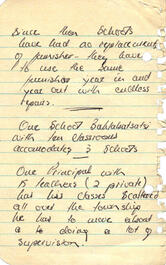 Since then Schools
have had no replacement
of furniture - they have
to use the same
furniture year in and
year out with endless
repairs.
One School
with ten classrooms
accomodates 3 Schools
One Principal with
15 teachers (2 private)
has his classes scattered
all over the township
he has to move about
& to doing a lot of
Supervision.